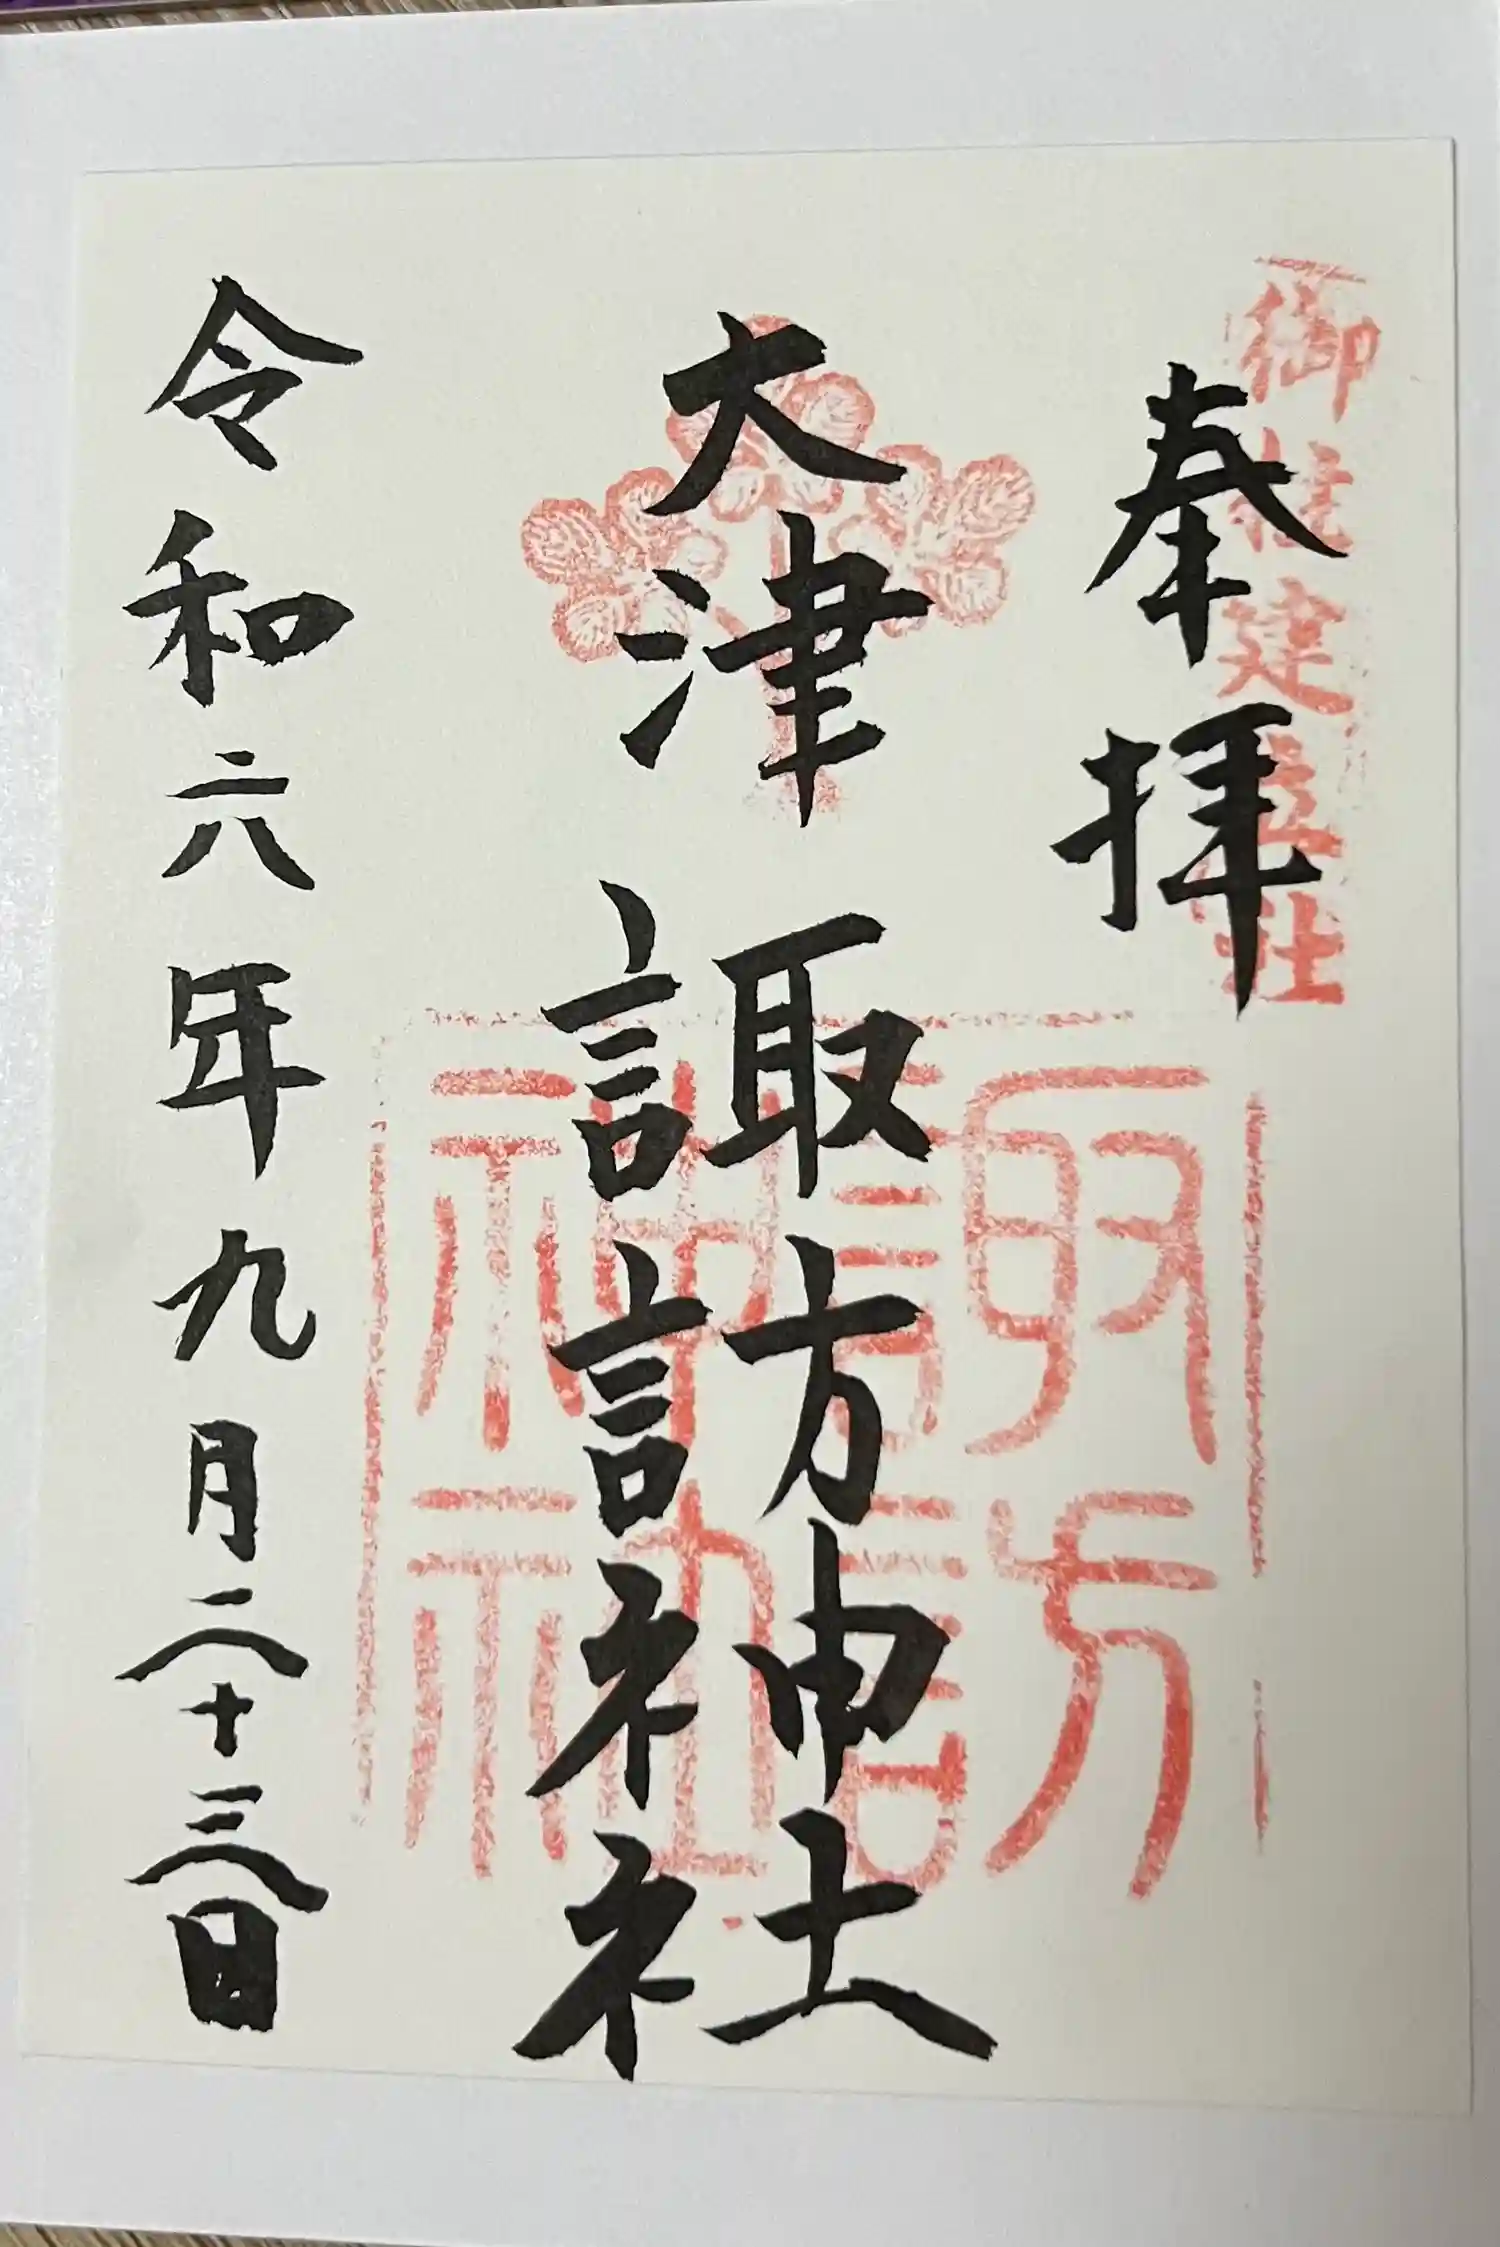 御柱建立社
奉拝
大津諏訪神社
諏訪
神社
令和六年九月二十三日